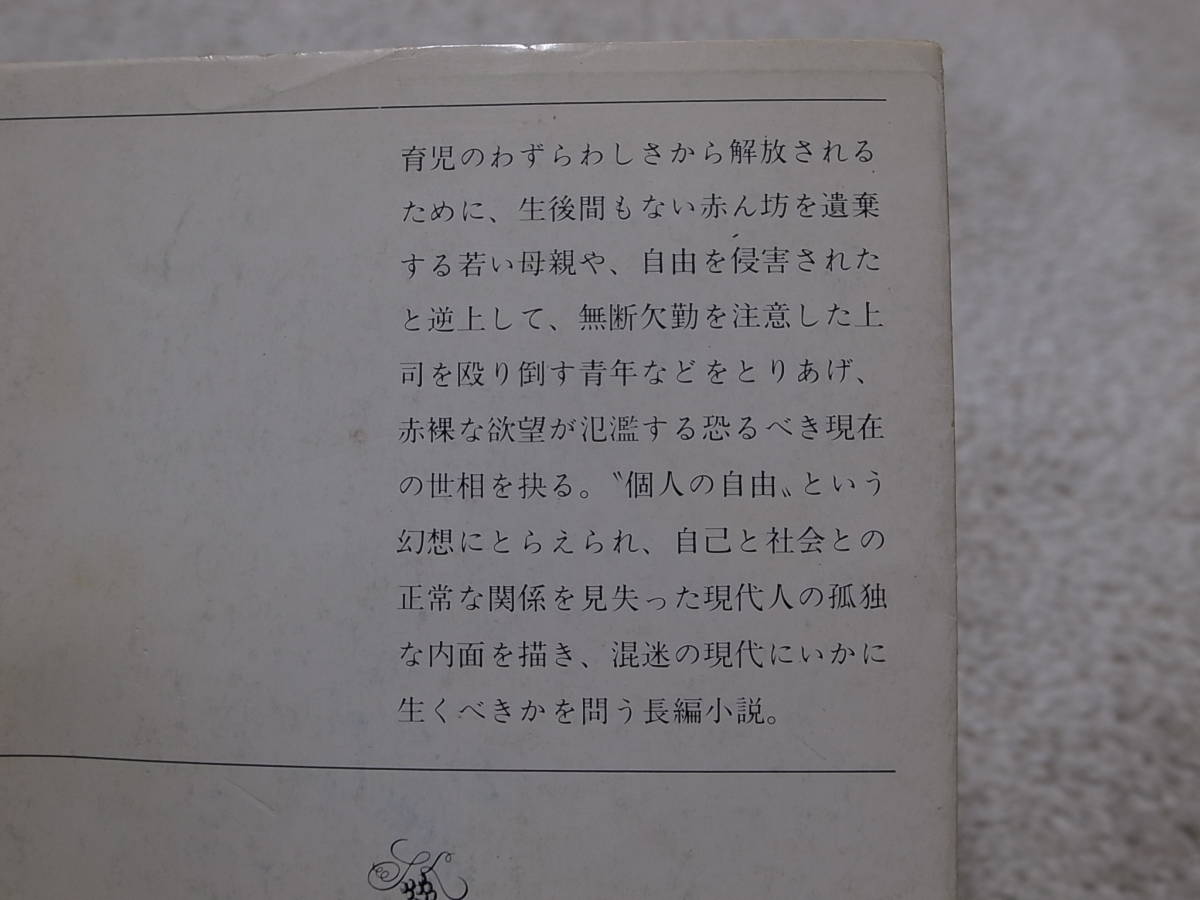 育児のわずらわしさから解放される
ために、生後間もない赤ん坊を遺棄
する若い母親や、自由を侵害された
と逆上して、無断欠勤を注意した上
司を殴り倒す青年などをとりあげ、
赤裸な欲望が氾濫する恐るべき現在
の世相を抉る。〝個人の自由〟という
幻想にとらえられ、自己と社会との
正常な関係を見失った現代人の孤独
な内面を描き、混迷の現代にいかに
生くべきかを問う長編小説。
SK